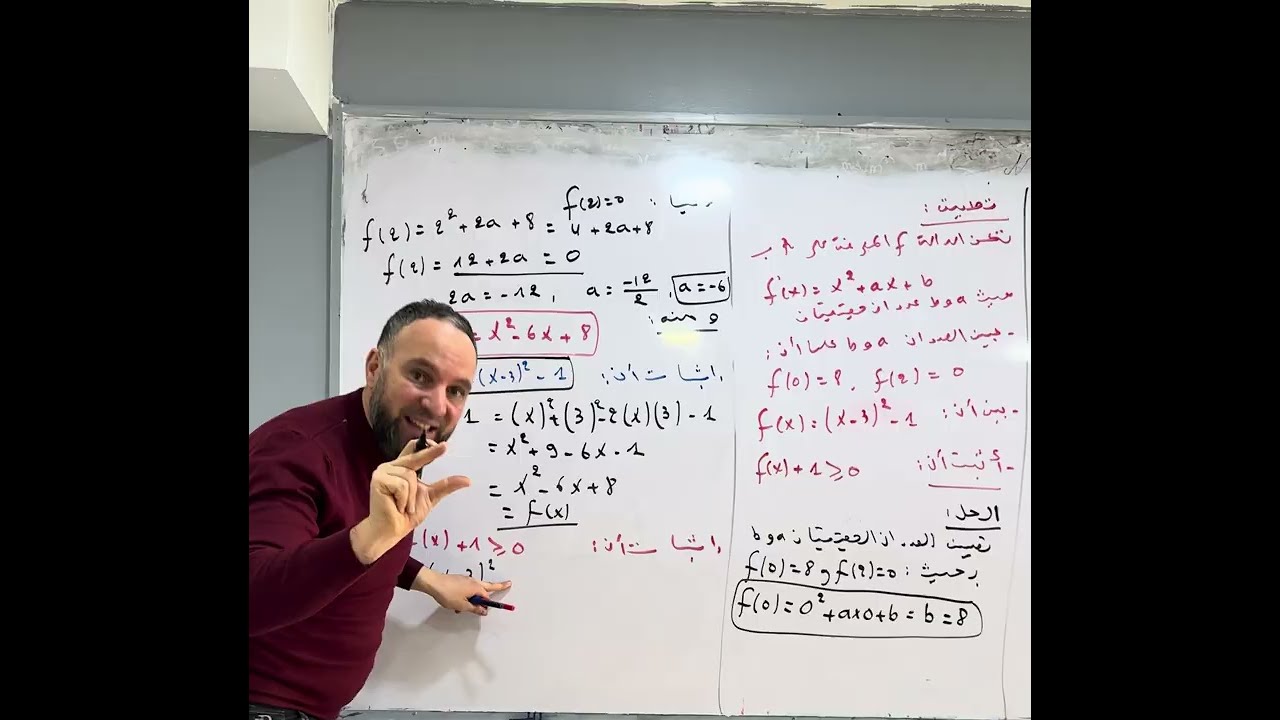 تطبيق:
نعتبر الدالة f المعرفة على R بـ
f(x) = x² + ax + b
حيث a و b عددان حقيقيان
- عين العددان a و b علما أن:
f(0) = 8 , f(2) = 0
- بين أن: f(x) = (x-3)² - 1
- أثبت أن: f(x) + 1 ⩾ 0
الحل:
تعيين العددان الحقيقيتان a و b
بحيث: f(2)=0 و f(0)=8
f(0) = 0² + a×0 + b = b = 8
f(2)=0
f(2) = 2² + 2a + 8 = 4 + 2a + 8
f(2) = 12 + 2a = 0
2a = -12 , a = -12/2 , a = -6
و منه:
= x² - 6x + 8
اثبات أن: (x-3)² - 1
1 = (x)² + (3)² - 2(x)(3) - 1
= x² + 9 - 6x - 1
= x² - 6x + 8
= f(x)
اثبات أن: f(x) + 1 ⩾ 0